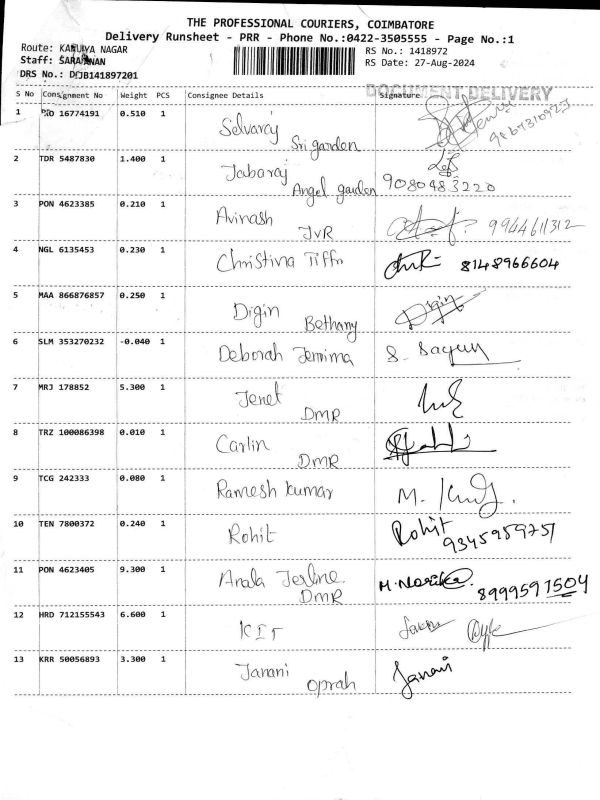 THE PROFESSIONAL COURIERS, COIMBATORE
Delivery Runsheet - PRR - Phone No.:0422-3505555 - Page No.:1
Route: KARUNYA NAGAR RS No.: 1418972
Staff: SARAVANAN RS Date: 27-Aug-2024
DRS No.: DJB141897201
DOCUMENT DELIVERY
S No Consignment No Weight PCS Consignee Details Signature
1 16774191 0.510 1 Selvaraj Sri garden
2 TDR 5487830 1.400 1 Jabaraj Angel garden 9080483220
3 PON 4623385 0.210 1 Avinash JVR 9944611312
4 NGL 6135453 0.230 1 Christina Tiffi 8148966604
5 MAA 866876857 0.250 1 Digin Bethany Digin
6 SLM 353270232 -0.040 1 Deborah Jemima
7 MRJ 178852 5.300 1 Jenet DMR
8 TRZ 100086398 0.010 1 Carlin DMR
9 TCG 242333 0.080 1 Ramesh kumar
10 TEN 7800372 0.240 1 Rohit Rohit 9345959751
11 PON 4623405 9.300 1 Jerline DMR 8999597504
12 HRD 712155543 6.600 1
13 KRR 50056893 3.300 1 Janani oprah Janani